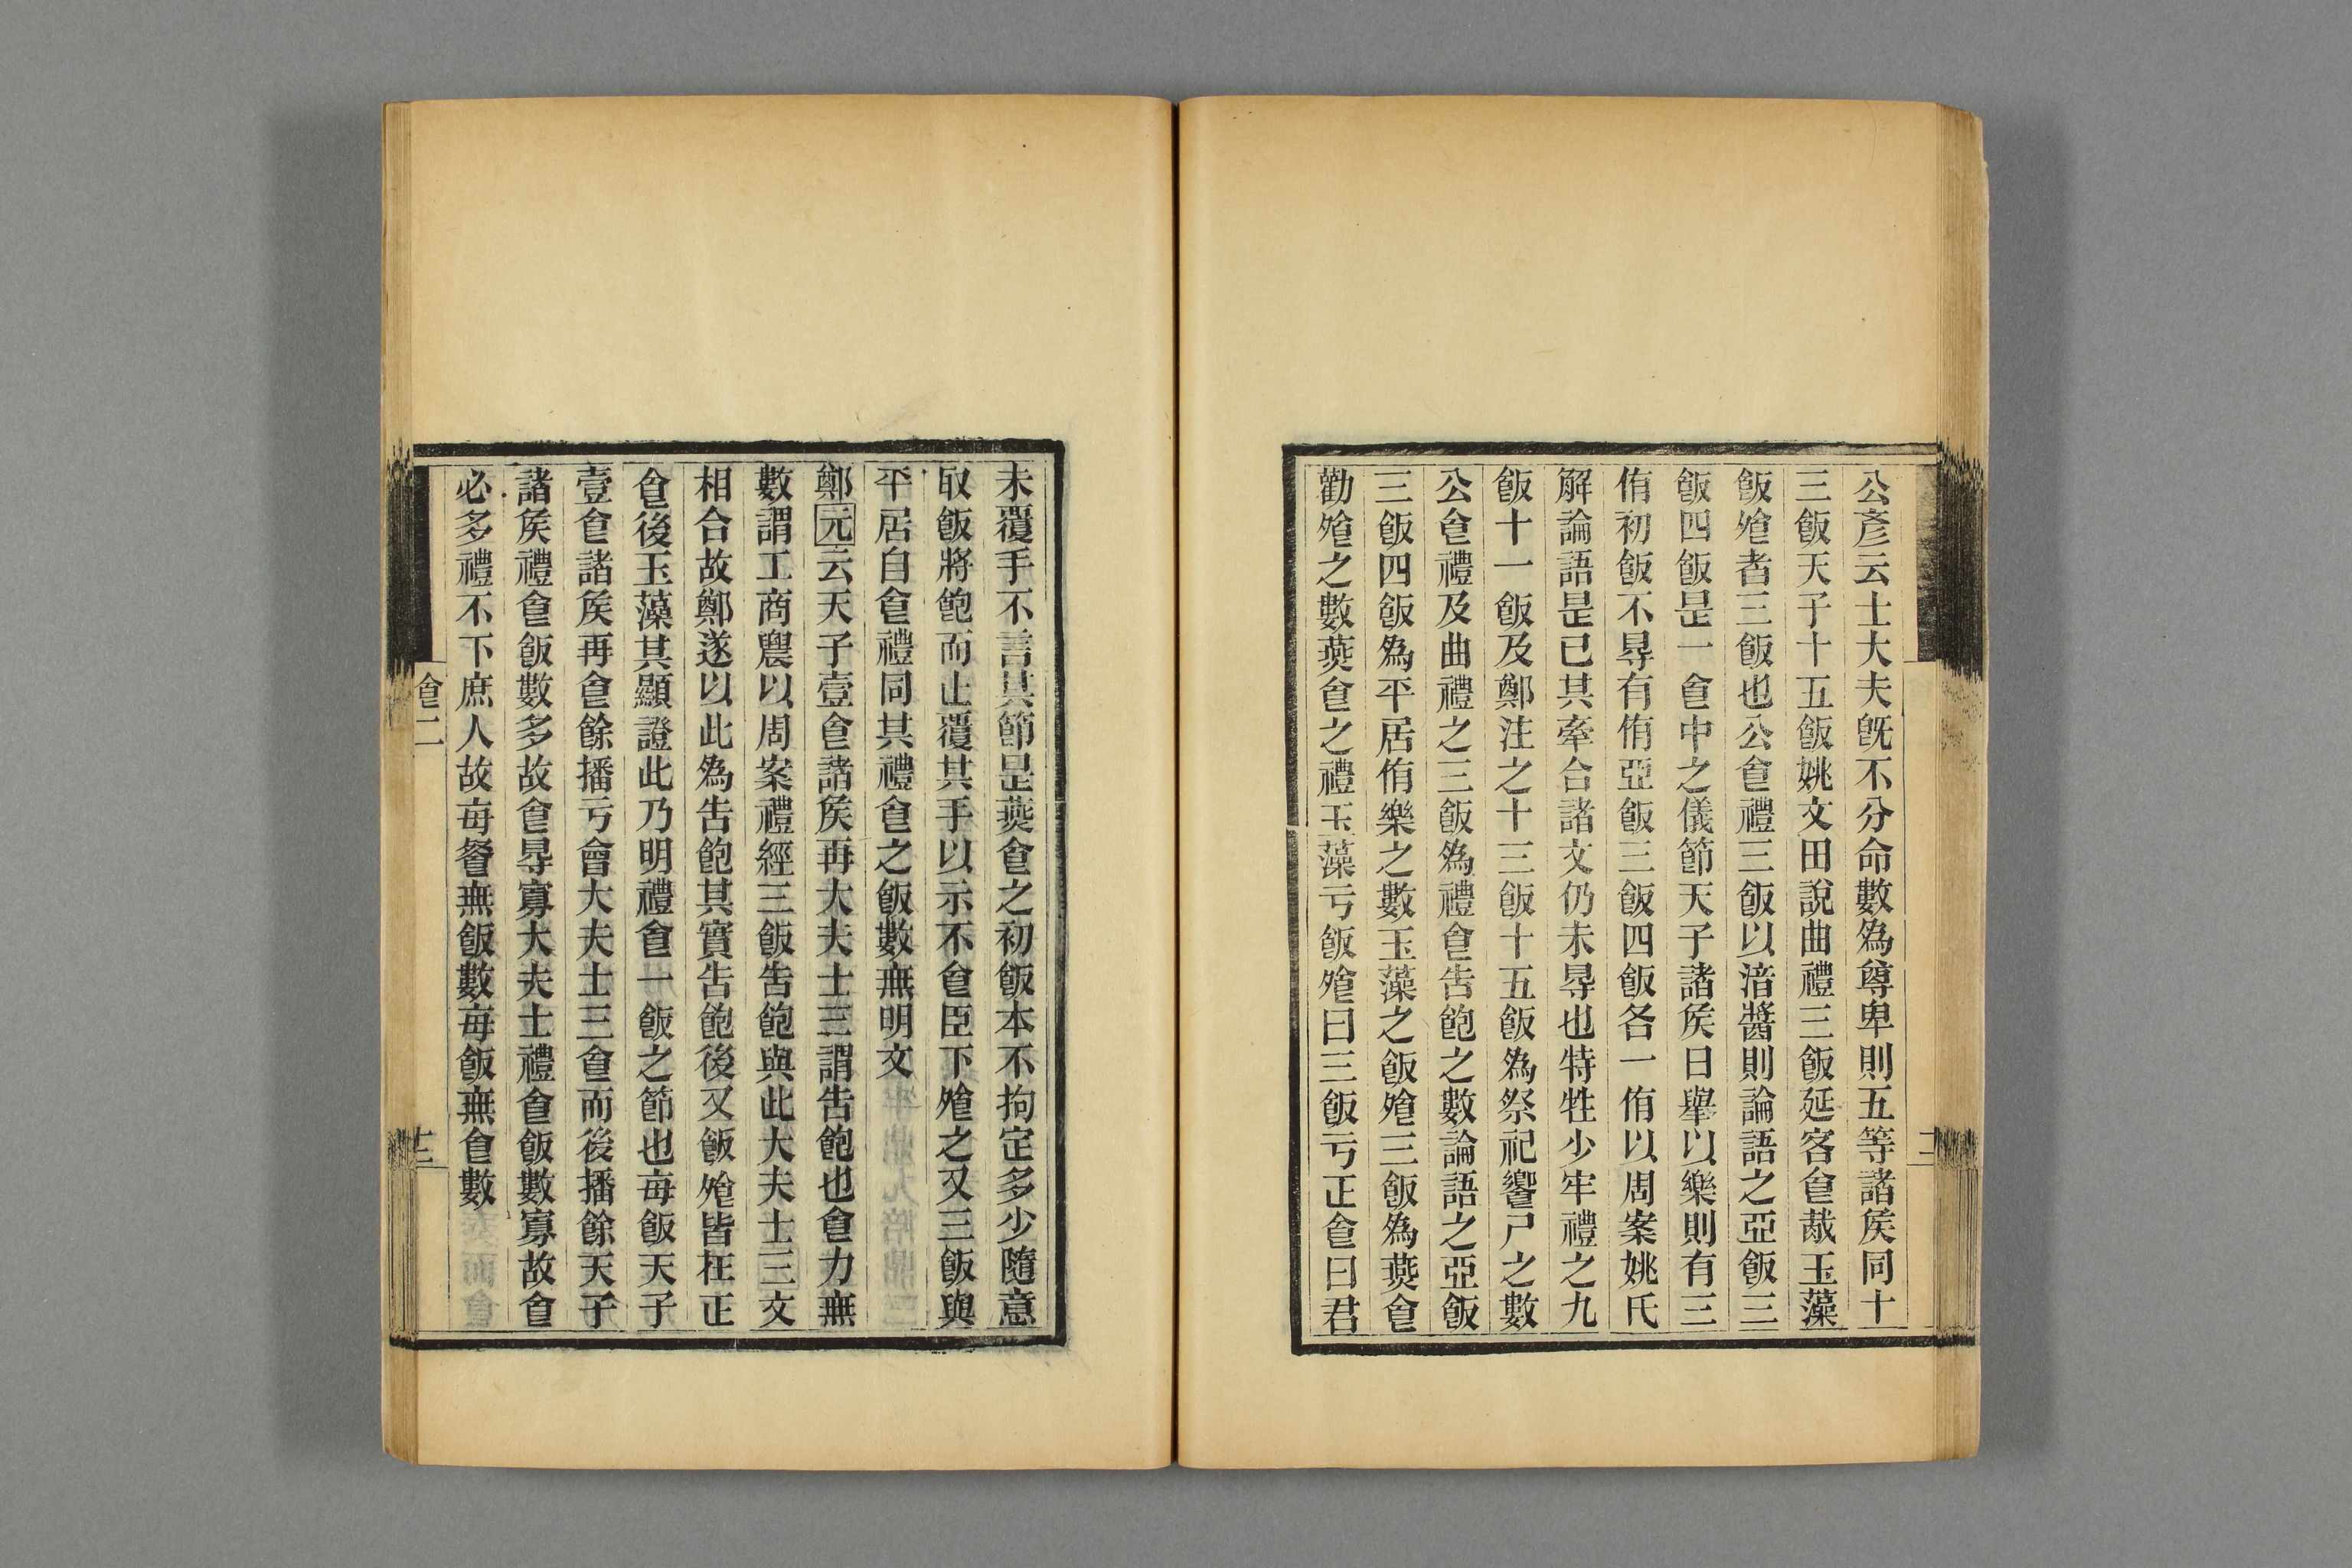 公彥云士大夫旣不分命數爲尊卑則五等諸矦同十
三飯天子十五飯姚文田說曲禮三飯延客食胾玉藻
飯飧者三飯也公食禮三飯以湆醬則論語之亞飯三
飯四飯昰一食中之儀節天子諸矦日舉以樂則有三
侑初飯不㝵有侑亞飯三飯四飯各一侑以周案姚氏
解論語昰已其牽合諸文仍未㝵也特牲少牢禮之九
飯十一飯及鄭注之十三飯十五飯爲祭祀饗尸之數
公食禮及曲禮之三飯爲禮食告飽之數論語之亞飯
三飯四飯爲平居侑樂之數玉藻之飯飧三飯爲燕食
勸飧之數燕食之禮玉藻亏飯飧曰三飯亏正食曰君
未覆手不言其節昰燕食之初飯本不拘定多少隨意
取飯將飽而止覆其手以示不食臣下飧之又三飯與
平居自食禮同其禮食之飯數無明文
鄭元云天子壹食諸矦再大夫士三謂告飽也食力無
數謂工商農以周案禮經三飯告飽與此大夫士三文
相合故鄭遂以此爲告飽其實告飽後又飯飧皆在正
食後玉藻其顯證此乃明禮食一飯之節也每飯天子
壹食諸矦再食餘播亏會大夫士三食而後播餘天子
諸矦禮食飯數多故食㝵寡大夫士禮食飯數寡故食
必多禮不下庶人故每餐無飯數每飯無食數
食二
十二